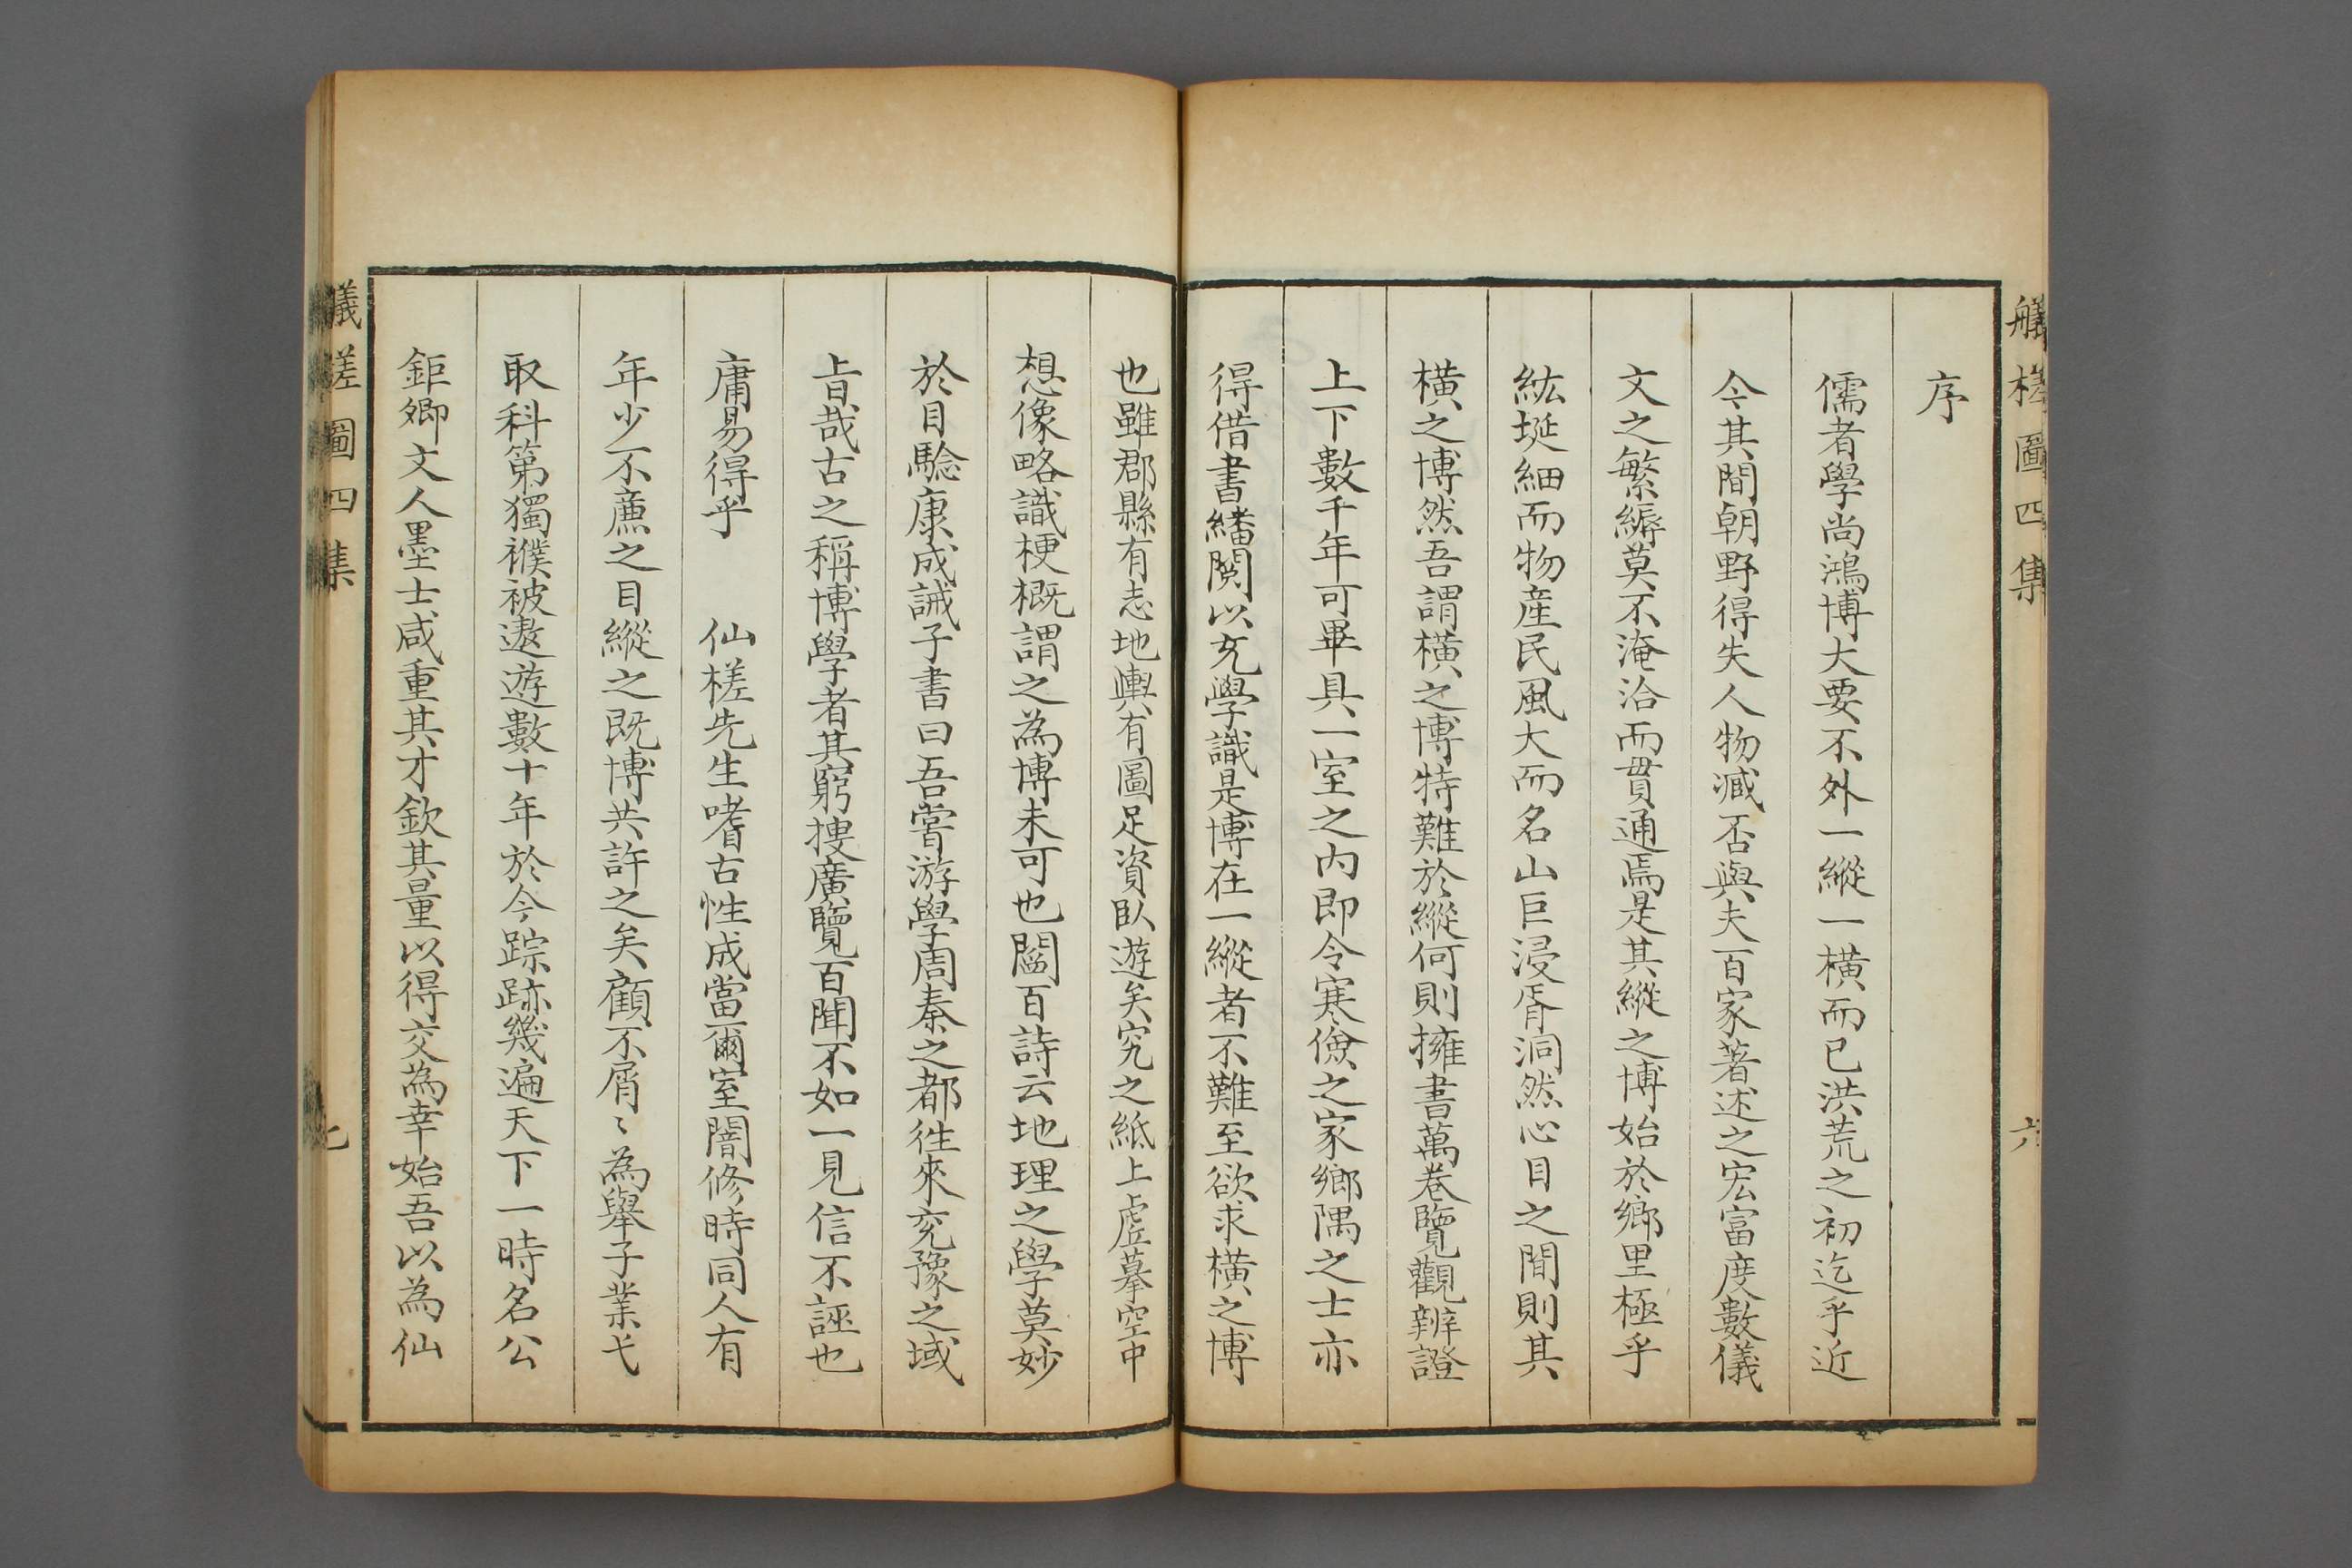 艤槎圖四集
六
序
儒者學尚鴻博大要不外一縱一橫而已洪荒之初迄乎近
今其間朝野得失人物臧否與夫百家著述之宏富度數儀
文之繁縟莫不淹洽而貫通焉是其縱之博始於鄉里極乎
紘埏細而物產民風大而名山巨浸胥洞然心目之間則其
橫之博然吾謂橫之博特難於縱何則擁書萬卷覽觀辨證
上下數千年可畢具一室之內即令寒儉之家鄉隅之士亦
得借書繙閱以充學識是博在一縱者不難至欲求橫之博
也雖郡縣有志地輿有圖足資臥遊矣究之紙上虛摹空中
想像略識梗概謂之為博未可也閻百詩云地理之學莫妙
於目驗康成誡子書曰吾嘗游學周秦之都徃來兖豫之域
旨哉古之稱博學者其窮搜廣覽百聞不如一見信不誣也
庸易得乎　仙槎先生嗜古性成當爾室闇修時同人有
年少不廉之目縱之既博共許之矣顧不屑〻為舉子業弋
取科第獨襆被遨遊數十年於今踪跡幾遍天下一時名公
鉅卿文人墨士咸重其才欽其量以得交為幸始吾以為仙
艤槎圖四集
七